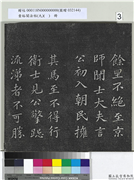 3
餘里不絶至京
師聞士大夫言
公初入朝民擁
其馬至不得行
衛士見公擎跽
流涕者不可勝